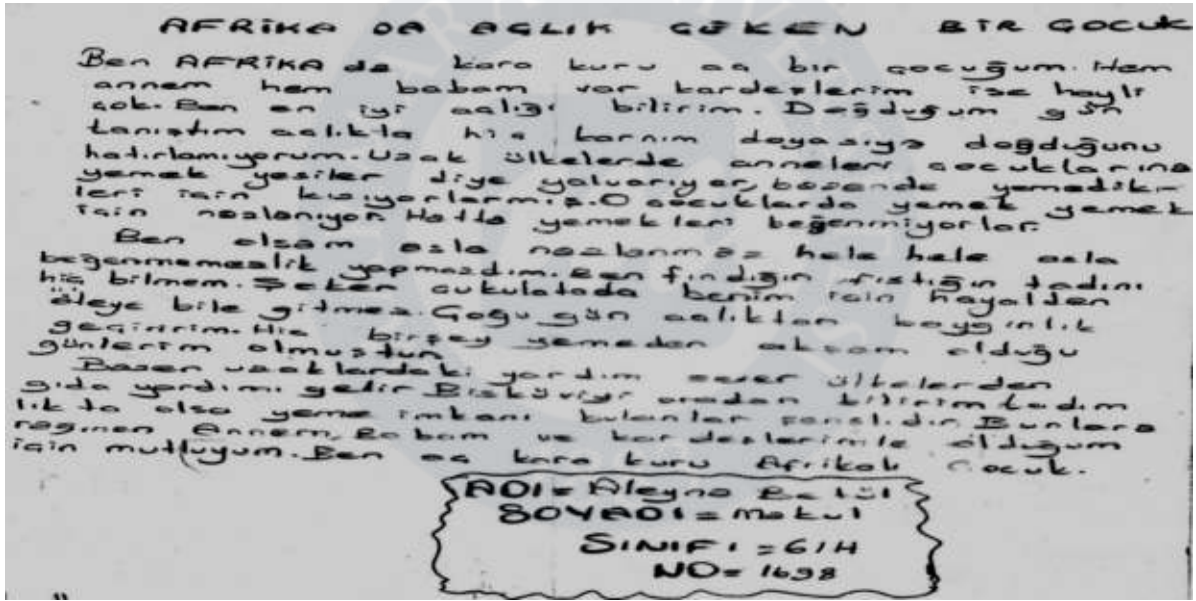 AFRİKA DA AÇLIK ÇEKEN BİR ÇOCUK
Ben AFRİKA da kara kuru aç bir çocuğum. Hem
annem hem babam var kardeşlerim ise hayli
çok. Ben en iyi açlığı bilirim. Doğduğum gün
tanıştım açlıkla hiç karnım doyasıya doğduğunu
hatırlamıyorum. Uzak ülkelerde anneleri çocuklarına
yemek yesiler diye yalvarıyor, bazende yemedik-
leri için kızıyorlarmış. O çocuklarda yemek yemek
için nazlanıyor. Hatta yemekleri beğenmiyorlar.
Ben olsam asla nazlanmaz hele hele asla
beğenmemezlik yapmazdım. Ben fındığın fıstığın tadını
hiç bilmem. Şeker çukulatada benim için hayalden
öteye bile gitmez. Çoğu gün açlıktan baygınlık
geçiririm. Hiç birşey yemeden akşam olduğu
günlerim olmuştur.
Bazen uzaklardaki yardım sever ülkelerden
gıda yardımı gelir Bisküviyi oradan bilirim tadım
lık ta olsa yeme imkanı bulanlar şanslıdır. Bunlara
rağmen Annem, Babam ve kardeşlerimle olduğum
için mutluyum. Ben aç kara kuru Afrikalı Çocuk.
ADI = Aleyna Betül
SOYADI = Makul
SINIFI = 6/H
NO = 1698